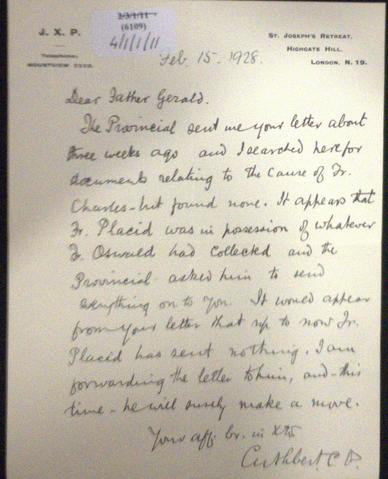 J. X. P.
Telephone:
MOUNTVIEW
2/3/1/11
(6109)
4/1/1/11
ST. JOSEPH'S RETREAT,
HIGHGATE HILL,
LONDON, N. 19.
Feb. 15. 1928.
Dear Father Gerald.
The Provincial sent me your letter about
three weeks ago and I searched here for
documents relating to the Cause of Fr.
Charles - but found none. It appears that
Fr. Placid was in possesion of whatever
Fr. Oswald had collected and the
Provincial asked him to send
everything on to you. It would appear
from your letter that up to now Fr.
Placid has sent nothing. I am
forwarding the letter to him, and - this
time - he will surely make a move.
Your aff. br. in
Cuthbert. C. P.